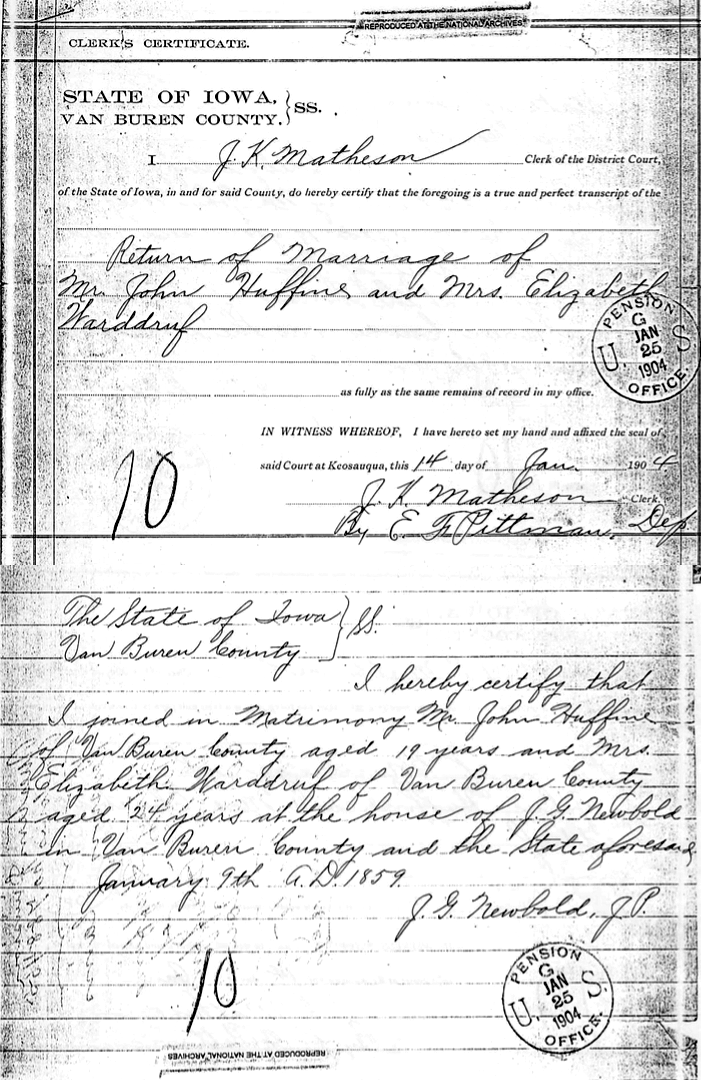 REPRODUCED AT THE NATIONAL ARCHIVES
CLERK'S CERTIFICATE.
STATE OF IOWA, } SS.
VAN BUREN COUNTY.
I J. K. Matheson Clerk of the District Court,
of the State of Iowa, in and for said County, do hereby certify that the foregoing is a true and perfect transcript of the
Return of Marriage of
Mr. John Huffine and Mrs. Elizabeth
Warddruf
PENSION
G
JAN
25
1904
U. S.
OFFICE.
as fully as the same remains of record in my office.
IN WITNESS WHEREOF, I have hereto set my hand and affixed the seal of
said Court at Keosauqua, this 14 day of Jan. 1904
J. K. Matheson Clerk.
By E. F. Pittman, Dep
10
The State of Iowa } SS.
Van Buren County
I hereby certify that
I joined in Matrimony Mr. John Huffine
of Van Buren County aged 19 years and Mrs.
Elizabeth Warddruf of Van Buren County
aged 24 years at the house of J. G. Newbold
in Van Buren County and the State aforesaid
January 9th A.D. 1859.
J. G. Newbold, J.P.
10
PENSION
G
JAN
25
1904
U. S.
OFFICE.
REPRODUCED AT THE NATIONAL ARCHIVES